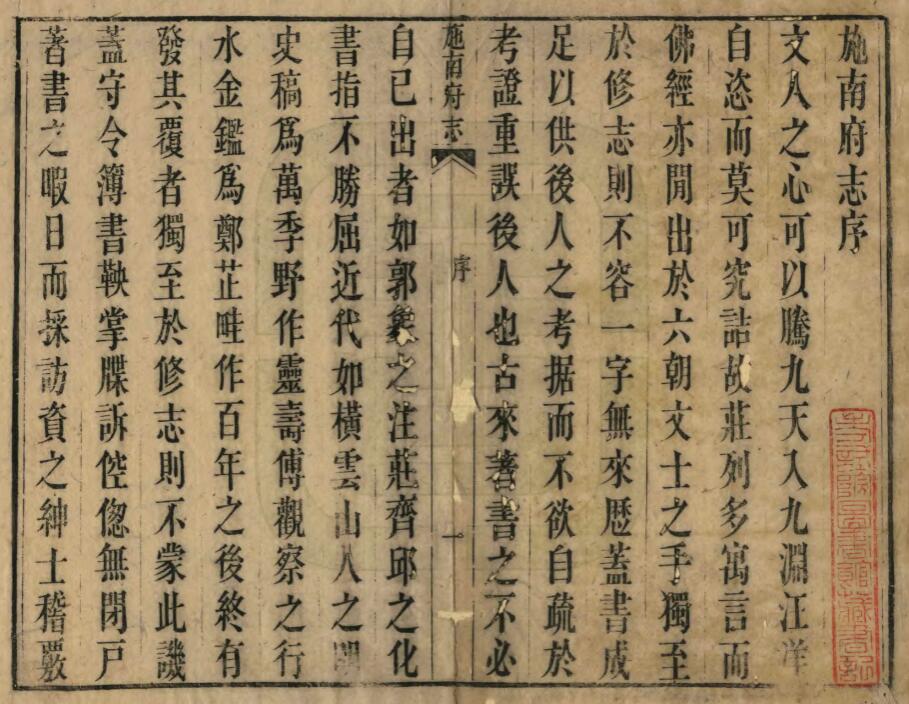 施南府志序
文人之心可以騰九天入九淵汪洋
自恣而莫可究詰故莊列多寓言而
佛經亦閒出於六朝文士之手獨至
於修志則不容一字無來歷蓋書成
足以供後人之考据而不欲自疏於
考證重誤後人也古來著書之不必
施南府志
序
一
自己出者如郭象之注莊齊邱之化
書指不勝屈近代如橫雲山人之
史稿爲萬季野作靈壽傅觀察之行
水金鑑爲鄭芷畦作百年之後終有
發其覆者獨至於修志則不蒙此譏
蓋守令簿書鞅掌牒訴倥傯無閉戸
著書之暇日而採訪資之紳士稽覈